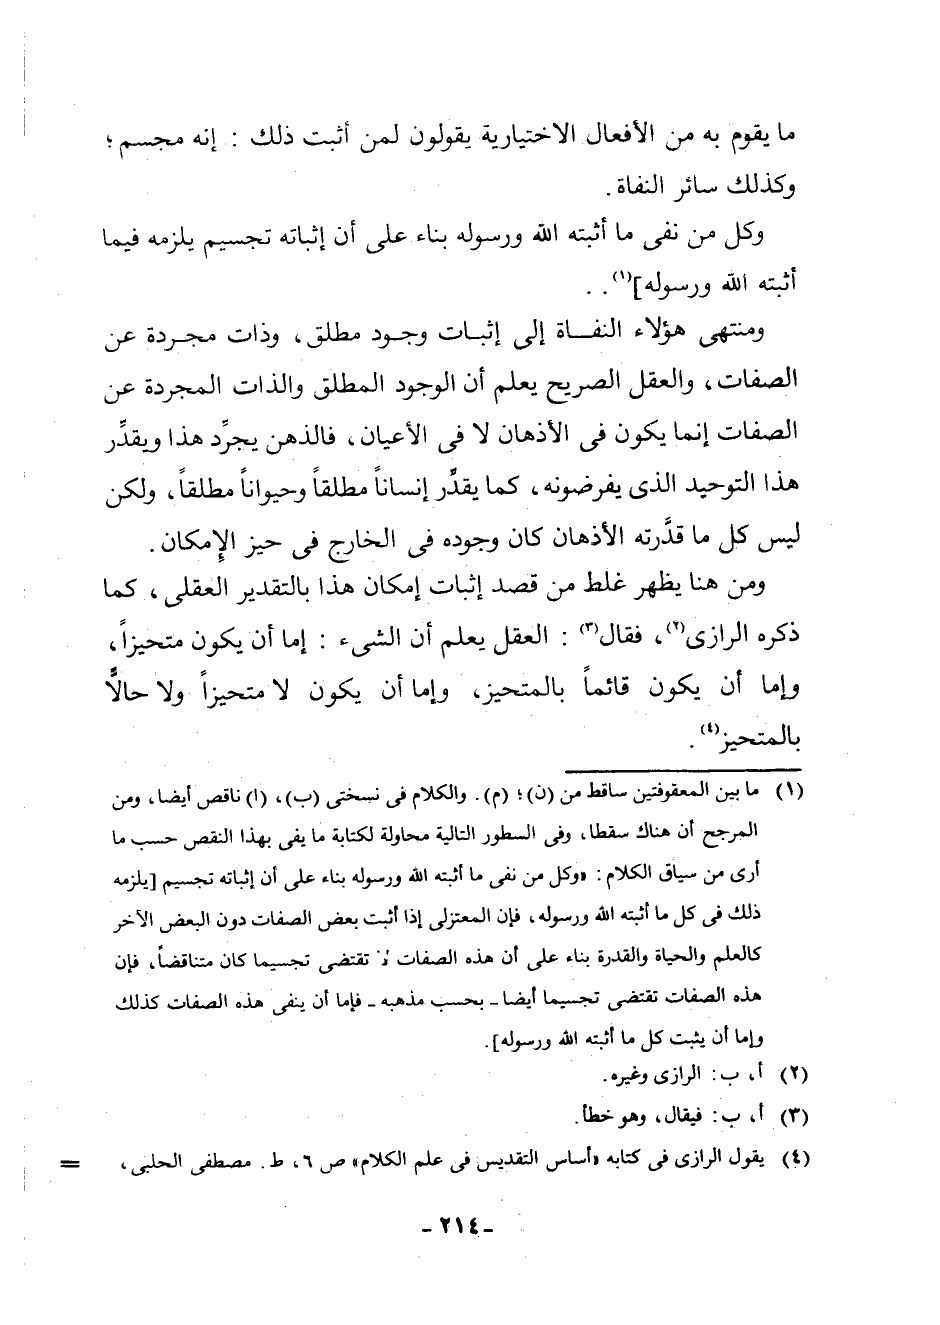 ما يقوم به من الأفعال الاختيارية يقولون لمن أثبت ذلك : إنه مجسم ؛
وكذلك سائر النفاة .
وكل من نفى ما أثبته الله ورسوله بناء على أن إثباته تجسيم يلزمه فيما
أثبته الله ورسوله](١) . .
ومنتهى هؤلاء النفـــاة إلى إثبـات وجـود مطلق ، وذات مجـردة عن
الصفات ، والعقل الصريح يعلم أن الوجود المطلق والذات المجردة عن
الصفات إنما يكون فى الأذهان لا فى الأعيان ، فالذهن يجرِّد هذا ويقدِّر
هذا التوحيد الذى يفرضونه ، كما يقدِّر إنساناً مطلقاً وحيواناً مطلقاً ، ولكن
ليس كل ما قدَّرته الأذهان كان وجوده فى الخارج فى حيز الإمكان .
ومن هنا يظهر غلط من قصد إثبات إمكان هذا بالتقدير العقلى ، كما
ذكره الرازى(٢) ، فقال(٣) : العقل يعلم أن الشىء : إما أن يكون متحيزاً ،
وإما أن يكون قائماً بالمتحيز ، وإما أن يكون لا متحيزاً ولا حالًّا
بالمتحيز(٤) .
(١) ما بين المعقوفتين ساقط من (ن) ؛ (م) . والكلام فى نسختى (ب) ، (ا) ناقص أيضا ، ومن
المرجح أن هناك سقطا ، وفى السطور التالية محاولة لكتابة ما يفى بهذا النقص حسب ما
أرى من سياق الكلام : «وكل من نفى ما أثبته الله ورسوله بناء على أن إثباته تجسيم [يلزمه
ذلك فى كل ما أثبته الله ورسوله ، فإن المعتزلى إذا أثبت بعض الصفات دون البعض الآخر
كالعلم والحياة والقدرة بناء على أن هذه الصفات لا تقتضى تجسيما كان متناقضاً ، فإن
هذه الصفات تقتضى تجسيما أيضا ـ بحسب مذهبه ـ فإما أن ينفى هذه الصفات كذلك
وإما أن يثبت كل ما أثبته الله ورسوله] .
(٢) أ ، ب : الرازى وغيره .
(٣) أ ، ب : فيقال ، وهو خطأ .
(٤) يقول الرازى فى كتابه «أساس التقديس فى علم الكلام» ص ٦ ، ط . مصطفى الحلبى ، =
- ٢١٤ -